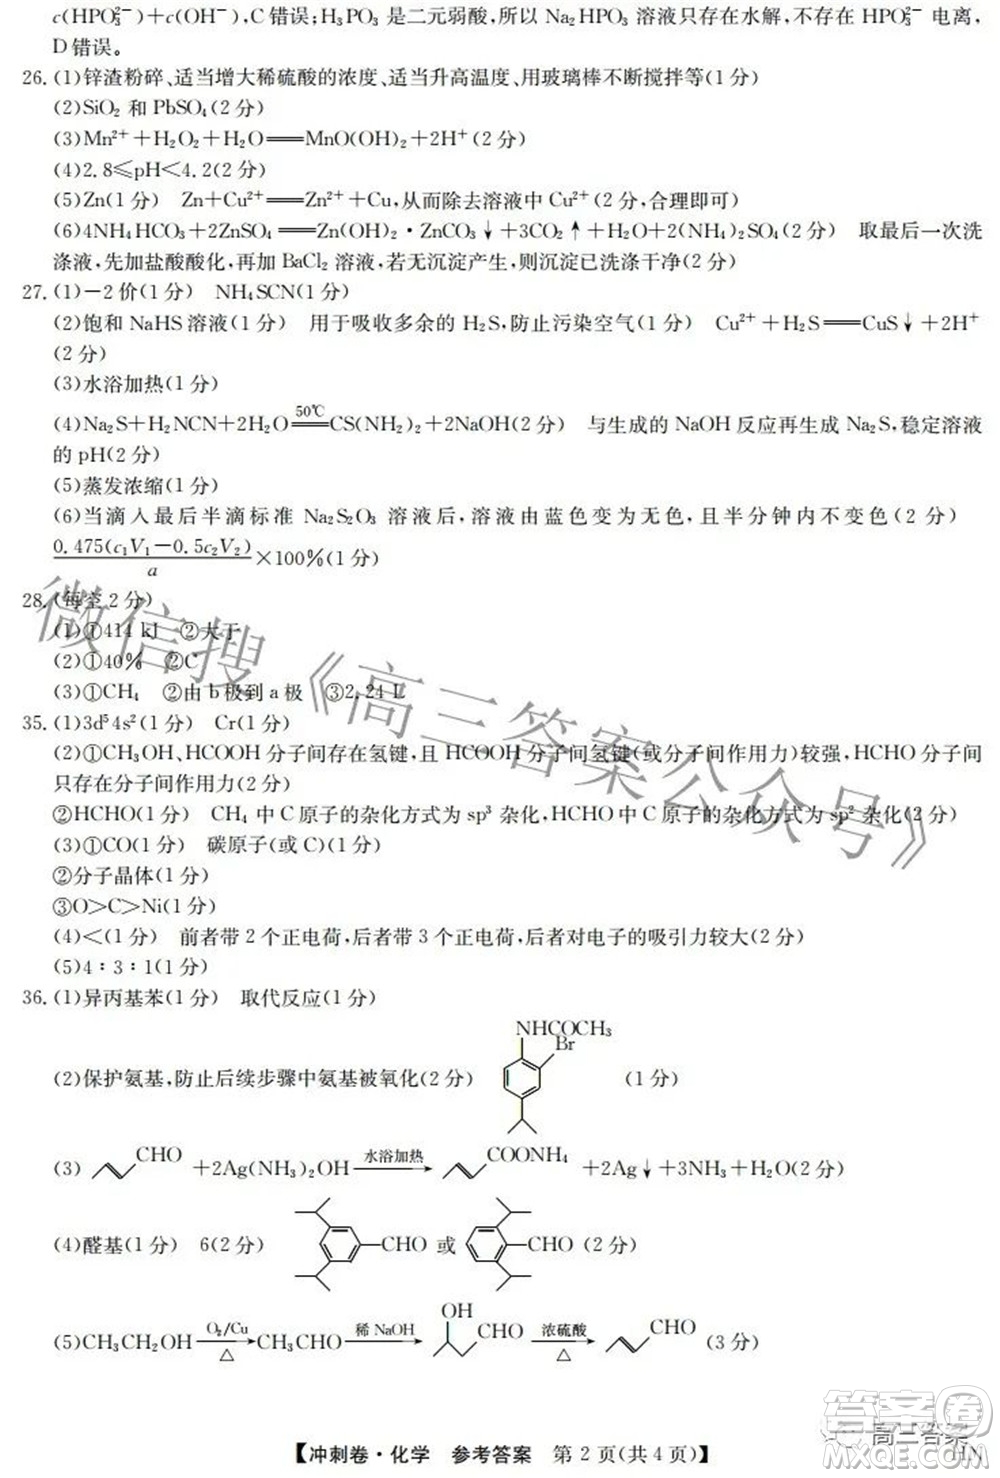 c(HPO₃²⁻)+c(OH⁻),C错误;H₃PO₃是二元弱酸,所以Na₂HPO₃溶液只存在水解,不存在HPO₃²⁻电离,
D错误。
26.(1)锌渣粉碎、适当增大稀硫酸的浓度、适当升高温度、用玻璃棒不断搅拌等(1分)
(2)SiO₂和PbSO₄(2分)
(3)Mn²⁺+H₂O₂+H₂O══MnO(OH)₂+2H⁺(2分)
(4)2.8≤pH<4.2(2分)
(5)Zn(1分) Zn+Cu²⁺══Zn²⁺+Cu,从而除去溶液中Cu²⁺(2分,合理即可)
(6)4NH₄HCO₃+2ZnSO₄══Zn(OH)₂·ZnCO₃↓+3CO₂↑+H₂O+2(NH₄)₂SO₄(2分) 取最后一次洗
涤液,先加盐酸酸化,再加BaCl₂溶液,若无沉淀产生,则沉淀已洗涤干净(2分)
27.(1)−2价(1分) NH₄SCN(1分)
(2)饱和NaHS溶液(1分) 用于吸收多余的H₂S,防止污染空气(1分) Cu²⁺+H₂S══CuS↓+2H⁺
(2分)
(3)水浴加热(1分)
(4)Na₂S+H₂NCN+2H₂O ══50℃══ CS(NH₂)₂+2NaOH(2分) 与生成的NaOH反应再生成Na₂S,稳定溶液
的pH(2分)
(5)蒸发浓缩(1分)
(6)当滴入最后半滴标准Na₂S₂O₃溶液后,溶液由蓝色变为无色,且半分钟内不变色(2分)
0.475(c₁V₁−0.5c₂V₂)/a×100%(1分)
28.(每空2分)
(1)①414 kJ ②大于
(2)①40% ②C
(3)①CH₄ ②由b极到a极 ③2.24 L
35.(1)3d⁵4s²(1分) Cr(1分)
(2)①CH₃OH、HCOOH分子间存在氢键,且HCOOH分子间氢键(或分子间作用力)较强,HCHO分子间
只存在分子间作用力(2分)
②HCHO(1分) CH₄中C原子的杂化方式为sp³杂化,HCHO中C原子的杂化方式为sp²杂化(2分)
(3)①CO(1分) 碳原子(或C)(1分)
②分子晶体(1分)
③O>C>Ni(1分)
(4)<(1分) 前者带2个正电荷,后者带3个正电荷,后者对电子的吸引力较大(2分)
(5)4∶3∶1(1分)
36.(1)异丙基苯(1分) 取代反应(1分)
NHCOCH₃
Br
(2)保护氨基,防止后续步骤中氨基被氧化(2分) (1分)
(3) CHO +2Ag(NH₃)₂OH 水浴加热→ COONH₄ +2Ag↓+3NH₃+H₂O(2分)
(4)醛基(1分) 6(2分) CHO 或 CHO (2分)
(5)CH₃CH₂OH O₂/Cu △→ CH₃CHO 稀NaOH→ OH CHO 浓硫酸 △→ CHO (3分)
【冲刺卷·化学 参考答案 第2页(共4页)】
HN
微信搜《高三答案公众号》
高三答案